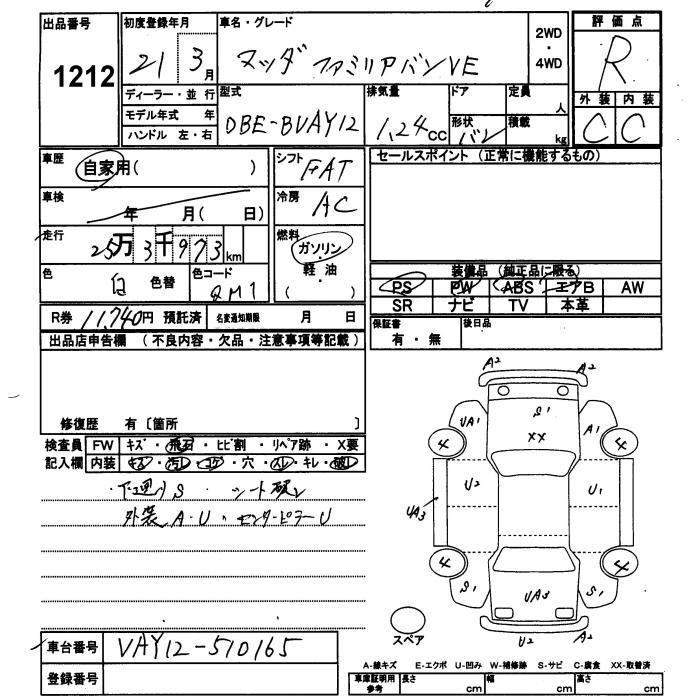 出品番号
1212
初度登録年月
21 3月
車名・グレード
マツダ ファミリアバンVE
2WD
・
4WD
評価点
R
外装 内装
C C
ディーラー・並行
モデル年式 年
ハンドル 左・右
型式
DBE-BVAY12
排気量
1,24cc
ドア
形状 バン
定員 人
積載 kg
車歴
自家用( )
シフト
FAT
車検
年 月( 日)
冷房
AC
走行
25万3千973km
燃料
ガソリン
・
軽油
( )
色
白
色替
色コード
QM1
セールスポイント (正常に機能するもの)
装備品 (純正品に限る)
PS PW ABS エアB AW
SR ナビ TV 本革
R券 11,740円 預託済
名変通知期限 月 日
保証書
有・無
後日品
出品店申告欄 (不良内容・欠品・注意事項等記載)
修復歴 有〔箇所 〕
検査員
記入欄
FW キズ・飛石・ヒビ割・リペア跡・X要
内装 キズ・汚レ・コゲ・穴・スレ・キレ・破レ
下廻りS シート破レ
外装A・U、センターピラーU
A2
S1
XX
UA1
A1
4
4
U2
U1
UA3
4
4
S1
UA3
S1
U2
A2
スペア
車台番号
VAY12-510165
登録番号
A-線キズ E-エクボ U-凹み W-補修跡 S-サビ C-腐食 XX-取替済
車庫証明用
参考
長さ cm
幅 cm
高さ cm